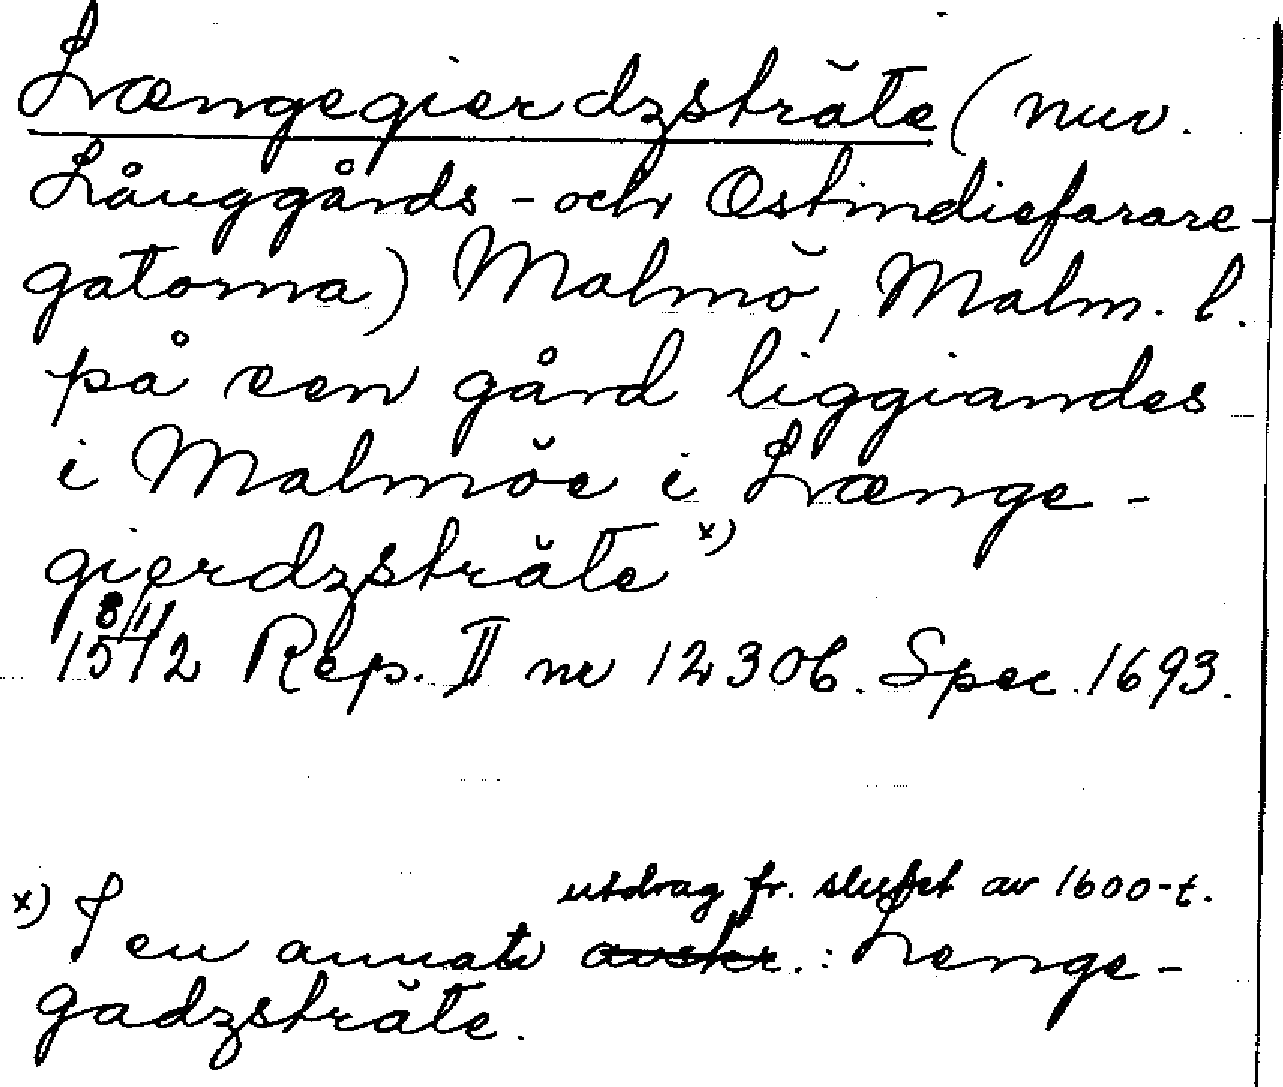 Længegierdzsträte (nuv.
Långgårds- och Ostindiefarare-
gatorna) Malmö, Malm. l.
på een gård liggiandes
i Malmöe i Længe-
gierdzsträte x)
8/11
1512 Rep. II nr 12306. Spec. 1693.
utdrag fr. slutet av 1600-t.
x) I en annat avskr.: Lenge-
gadzsträte.